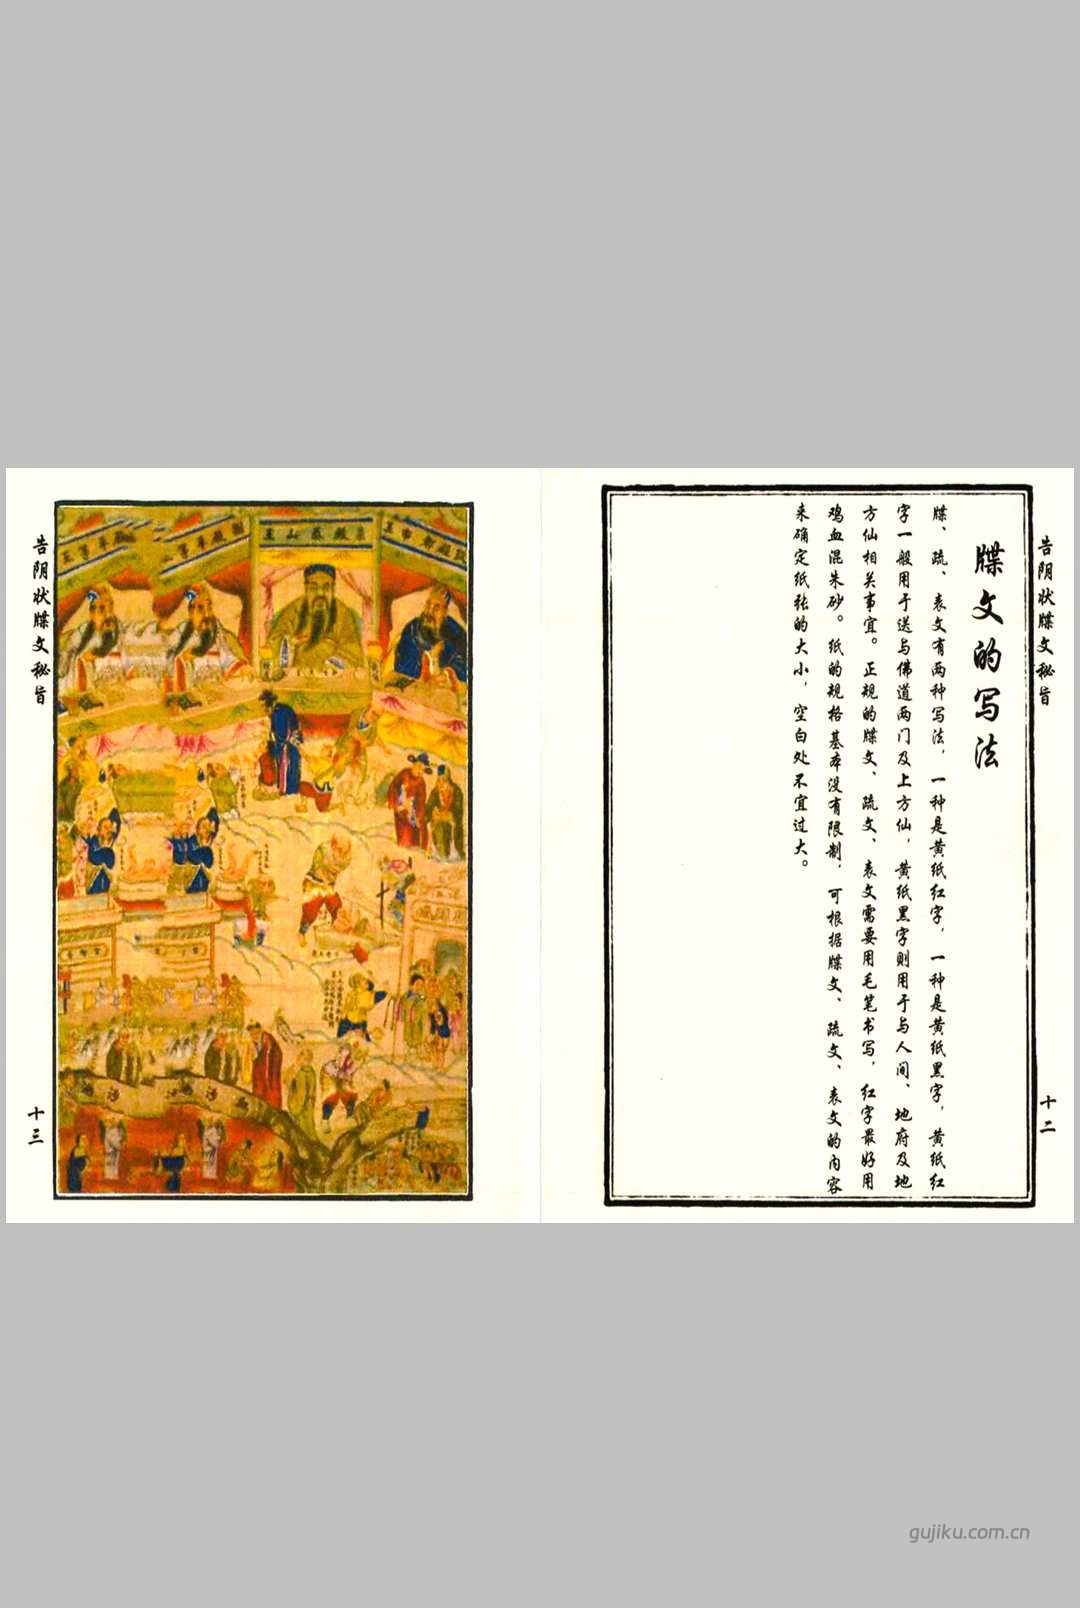 告阴状牒文秘旨
十二
牒文的写法
牒、疏、表文有两种写法，一种是黄纸红字，一种是黄纸黑字，黄纸红
字一般用于送与佛道两门及上方仙，黄纸黑字则用于与人间、地府及地
方仙相关事宜。正规的牒文、疏文、表文需要用毛笔书写，红字最好用
鸡血混朱砂。纸的规格基本没有限制，可根据牒文、疏文、表文的内容
来确定纸张的大小，空白处不宜过大。
告阴状牒文秘旨
十三
gujiku.com.cn